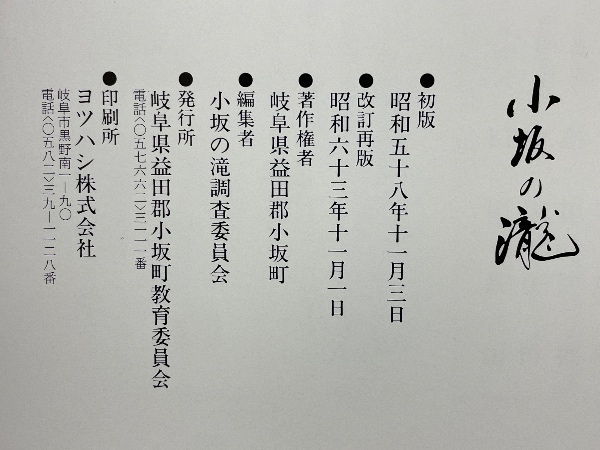 小坂の瀧
●初版
昭和五十八年十一月三日
●改訂再版
昭和六十三年十一月一日
●著作権者
岐阜県益田郡小坂町
●編集者
小坂の滝調査委員会
●発行所
岐阜県益田郡小坂町教育委員会
電話〈〇五七六六二〉三一一一番
●印刷所
ヨツハシ株式会社
岐阜市黒野南一―九〇
電話〈〇五八二〉三九―一一二八番